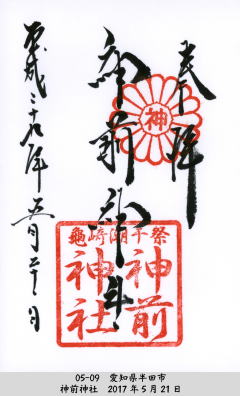 奉拝
神
神前神社
亀崎潮干祭
神前
神社
平成二十九年五月二十一日
05-09 愛知県半田市
神前神社 2017年5月21日